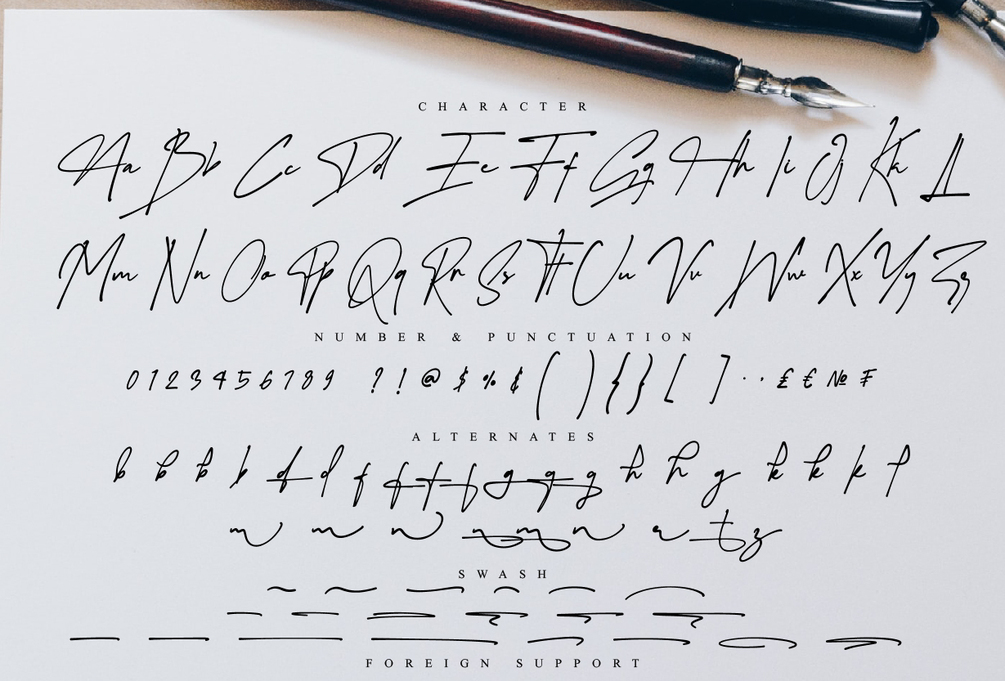 CHARACTER
Aa Bb Cc Dd Ee Ff Gg Hh Ii Jj Kk Ll
Mm Nn Oo Pp Qq Rr Ss Tt Uu Vv Ww Xx Yy Zz
NUMBER & PUNCTUATION
0 1 2 3 4 5 6 7 8 9 ? ! @ $ % & ( ) { } [ ] . . £ € № ₣
ALTERNATES
b b b b d d f f f f g g g h h g k k k l
m m n n m n r t z
SWASH
FOREIGN SUPPORT